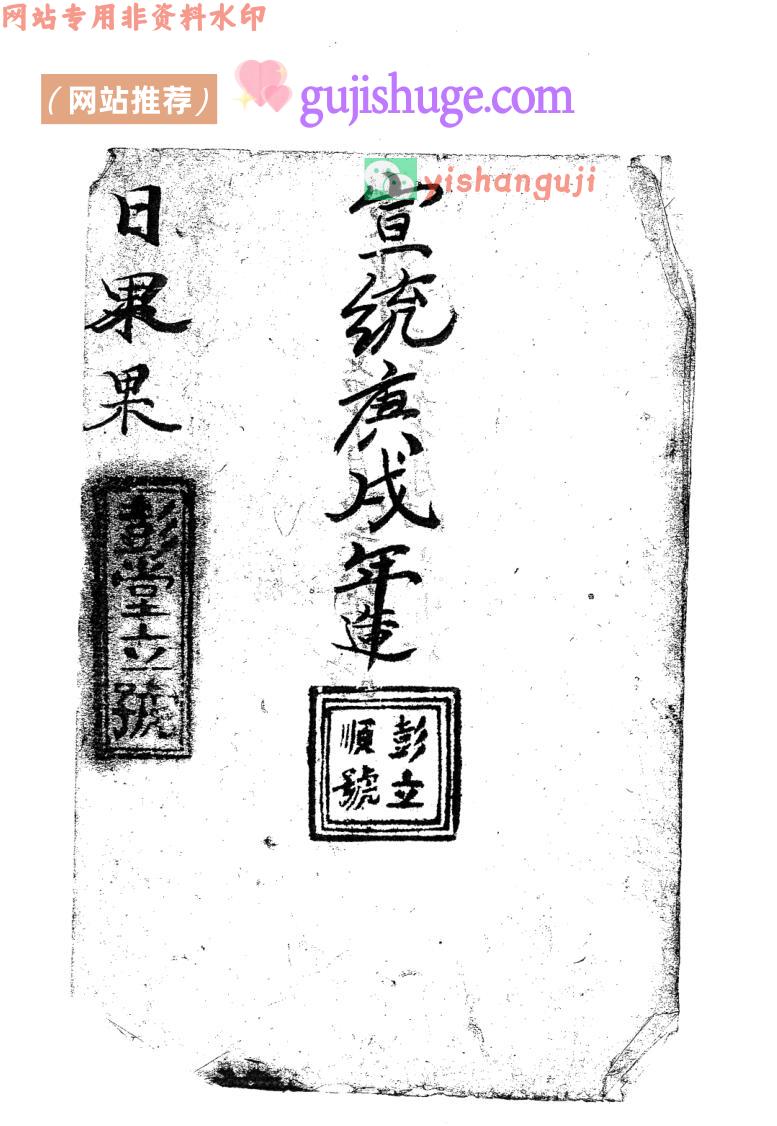 网站专用非资料水印
（网站推荐） gujishuge.com
yishanguji
宣統庚戌年造
彭立
順號
日杲果
彭堂立號